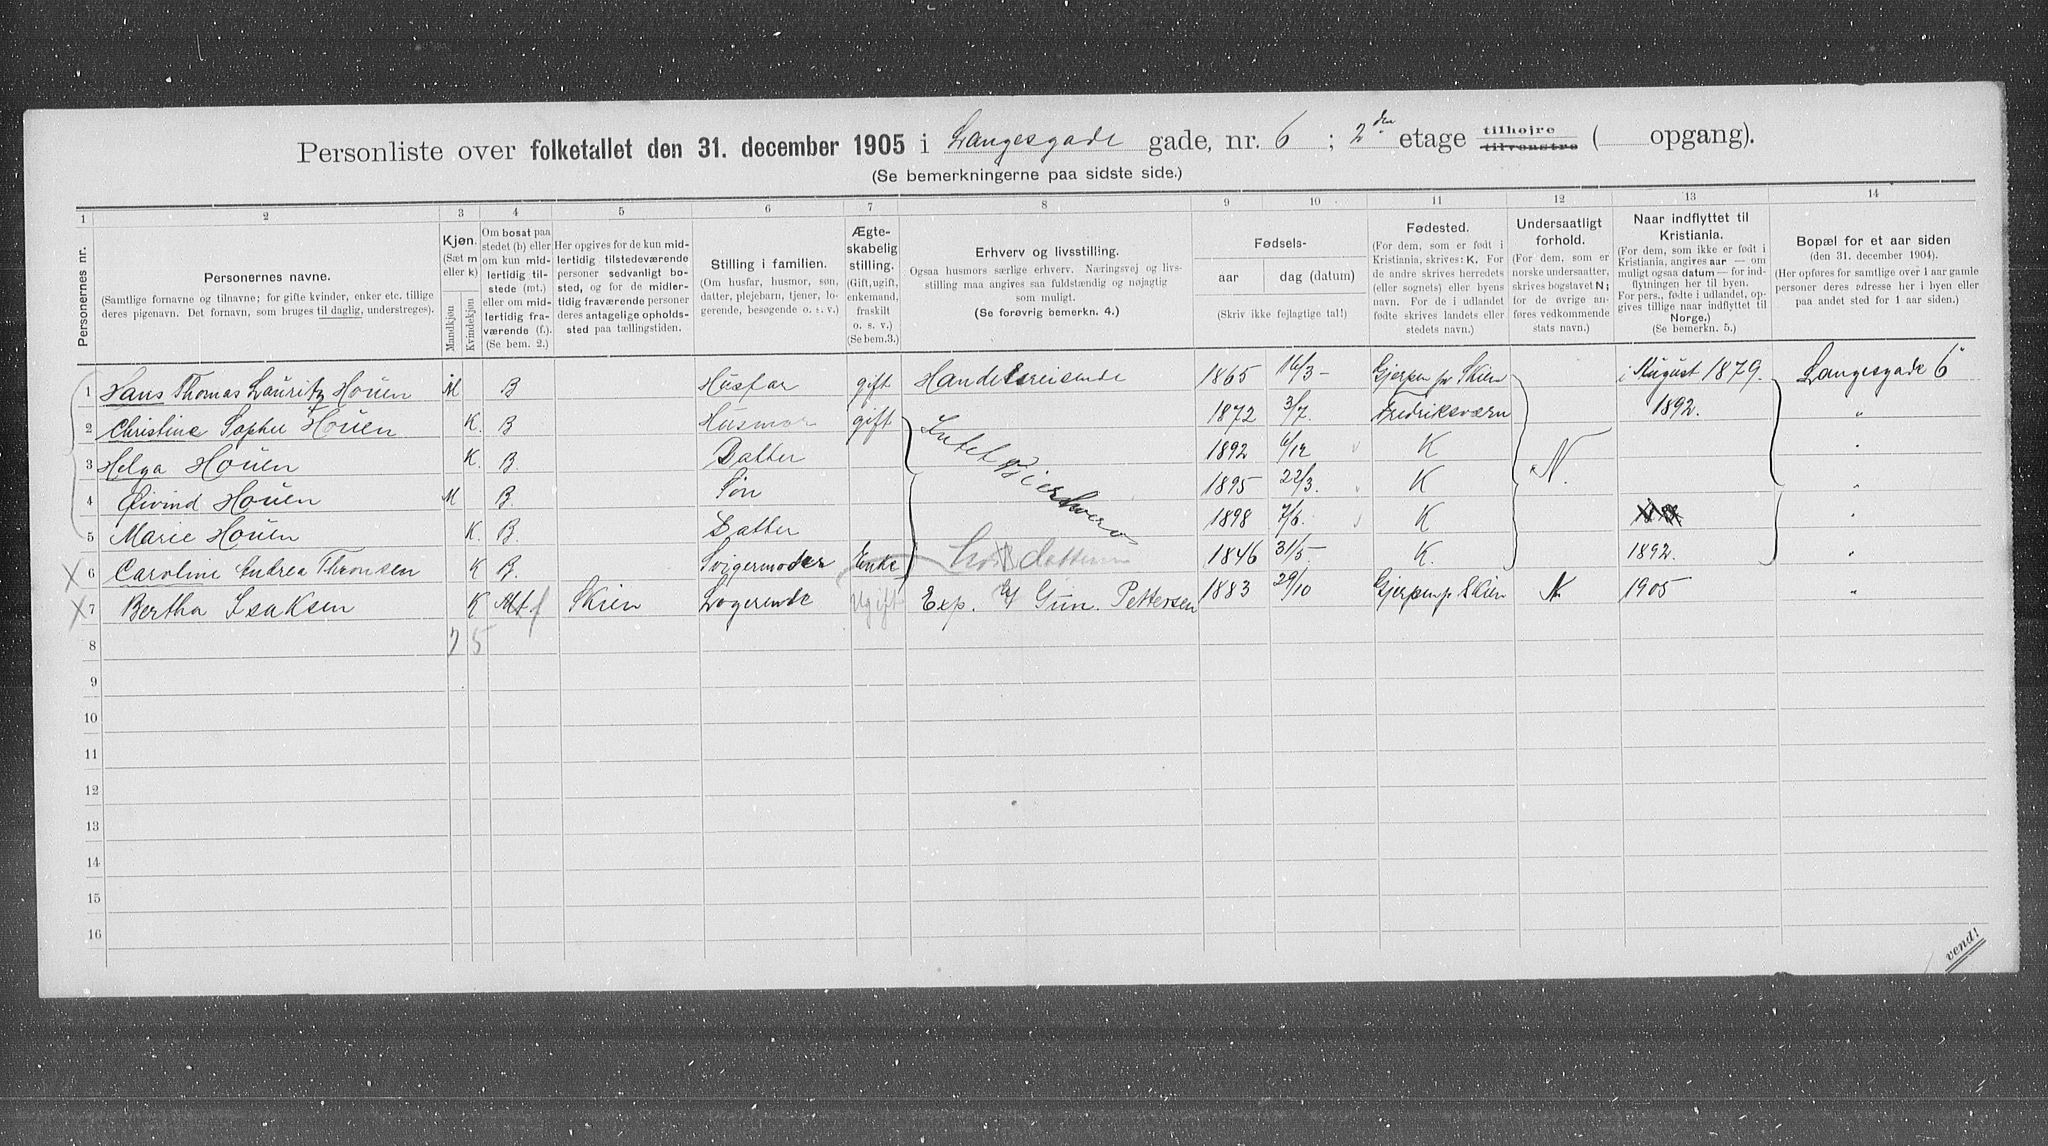 Personliste over folketallet den 31. december 1905 i Langesgade gade, nr. 6 ; 2den etage tilhøjre tilvenstre ( opgang).
(Se bemerkningerne paa sidste side.)
1 2 3 4 5 6 7 8 9 10 11 12 13 14
Personernes nr.
Personernes navne.
(Samtlige fornavne og tilnavne; for gifte kvinder, enker etc. tillige deres pigenavn. Det fornavn, som bruges til daglig, understreges).
Kjøn. (Sæt m eller k) Mandkjøn Kvindekjøn.
Om bosat paa stedet (b) eller om kun midlertidig tilstede (mt.) eller om midlertidig fraværende (f.). (Se bem. 2.)
Her opgives for de kun midlertidig tilstedeværende personer sedvanligt bosted, og for de midlertidig fraværende personer deres antagelige opholdssted paa tællingstiden.
Stilling i familien.
(Om husfar, husmor, søn, datter, plejebarn, tjener, logerende, besøgende o. s. v.)
Ægteskabelig stilling. (Gift, ugift, enkemand, fraskilt o. s. v.) (Se bem. 3.)
Erhverv og livsstilling.
Ogsaa husmors særlige erhverv. Næringsvej og livsstilling maa angives saa fuldstændig og nøjagtig som muligt.
(Se forøvrig bemerkn. 4.)
Fødsels-
aar dag (datum)
(Skriv ikke fejlagtige tal!)
Fødested.
(For dem, som er født i Kristiania, skrives: K. For de andre skrives herredets (eller sognets) eller byens navn. For de i udlandet fødte skrives landets eller stedets navn.)
Undersaatligt forhold.
(For dem, som er norske undersaatter, skrives bogstavet N; for de øvrige anføres vedkommende stats navn.)
Naar indflyttet til Kristiania.
(For dem, som ikke er født i Kristiania, angives aar — om muligt ogsaa datum — for indflytningen her til byen. For pers., fødte i udlandet, opgives tillige naar indflyttet til Norge.)
(Se bemerkn. 5.)
Bopæl for et aar siden
(den 31. december 1904).
(Her opføres for samtlige over 1 aar gamle personer deres adresse her i byen eller paa andet sted for 1 aar siden.)
1 Hans Thomas Lauritz Houen M B Husfar gift Handelsreisende 1865 16/3 Gjerpen pr Skien i August 1879. Langesgade 6
2 Christine Sophie Houen K. B Husmor gift Intet Erhverv 1872 3/7. Fredriksværn 1892. "
3 Helga Houen K. B. Datter 1892 6/12 K N. "
4 Øivind Houen M B. Søn 1895 22/3. K "
5 Marie Houen K. B. Datter 1898 7/6. K "
X 6 Caroline Andrea Thronsen K B. Svigermoder Enke 1846 31/5 K. 1892. "
X 7 Bertha Isaksen K Mt. f Skien Logerende Ugift Exp. Gun. Pettersen 1883 29/10 Gjerpen p Skien N 1905 "
8 2 5
9
10
11
12
13
14
15
16
vend!